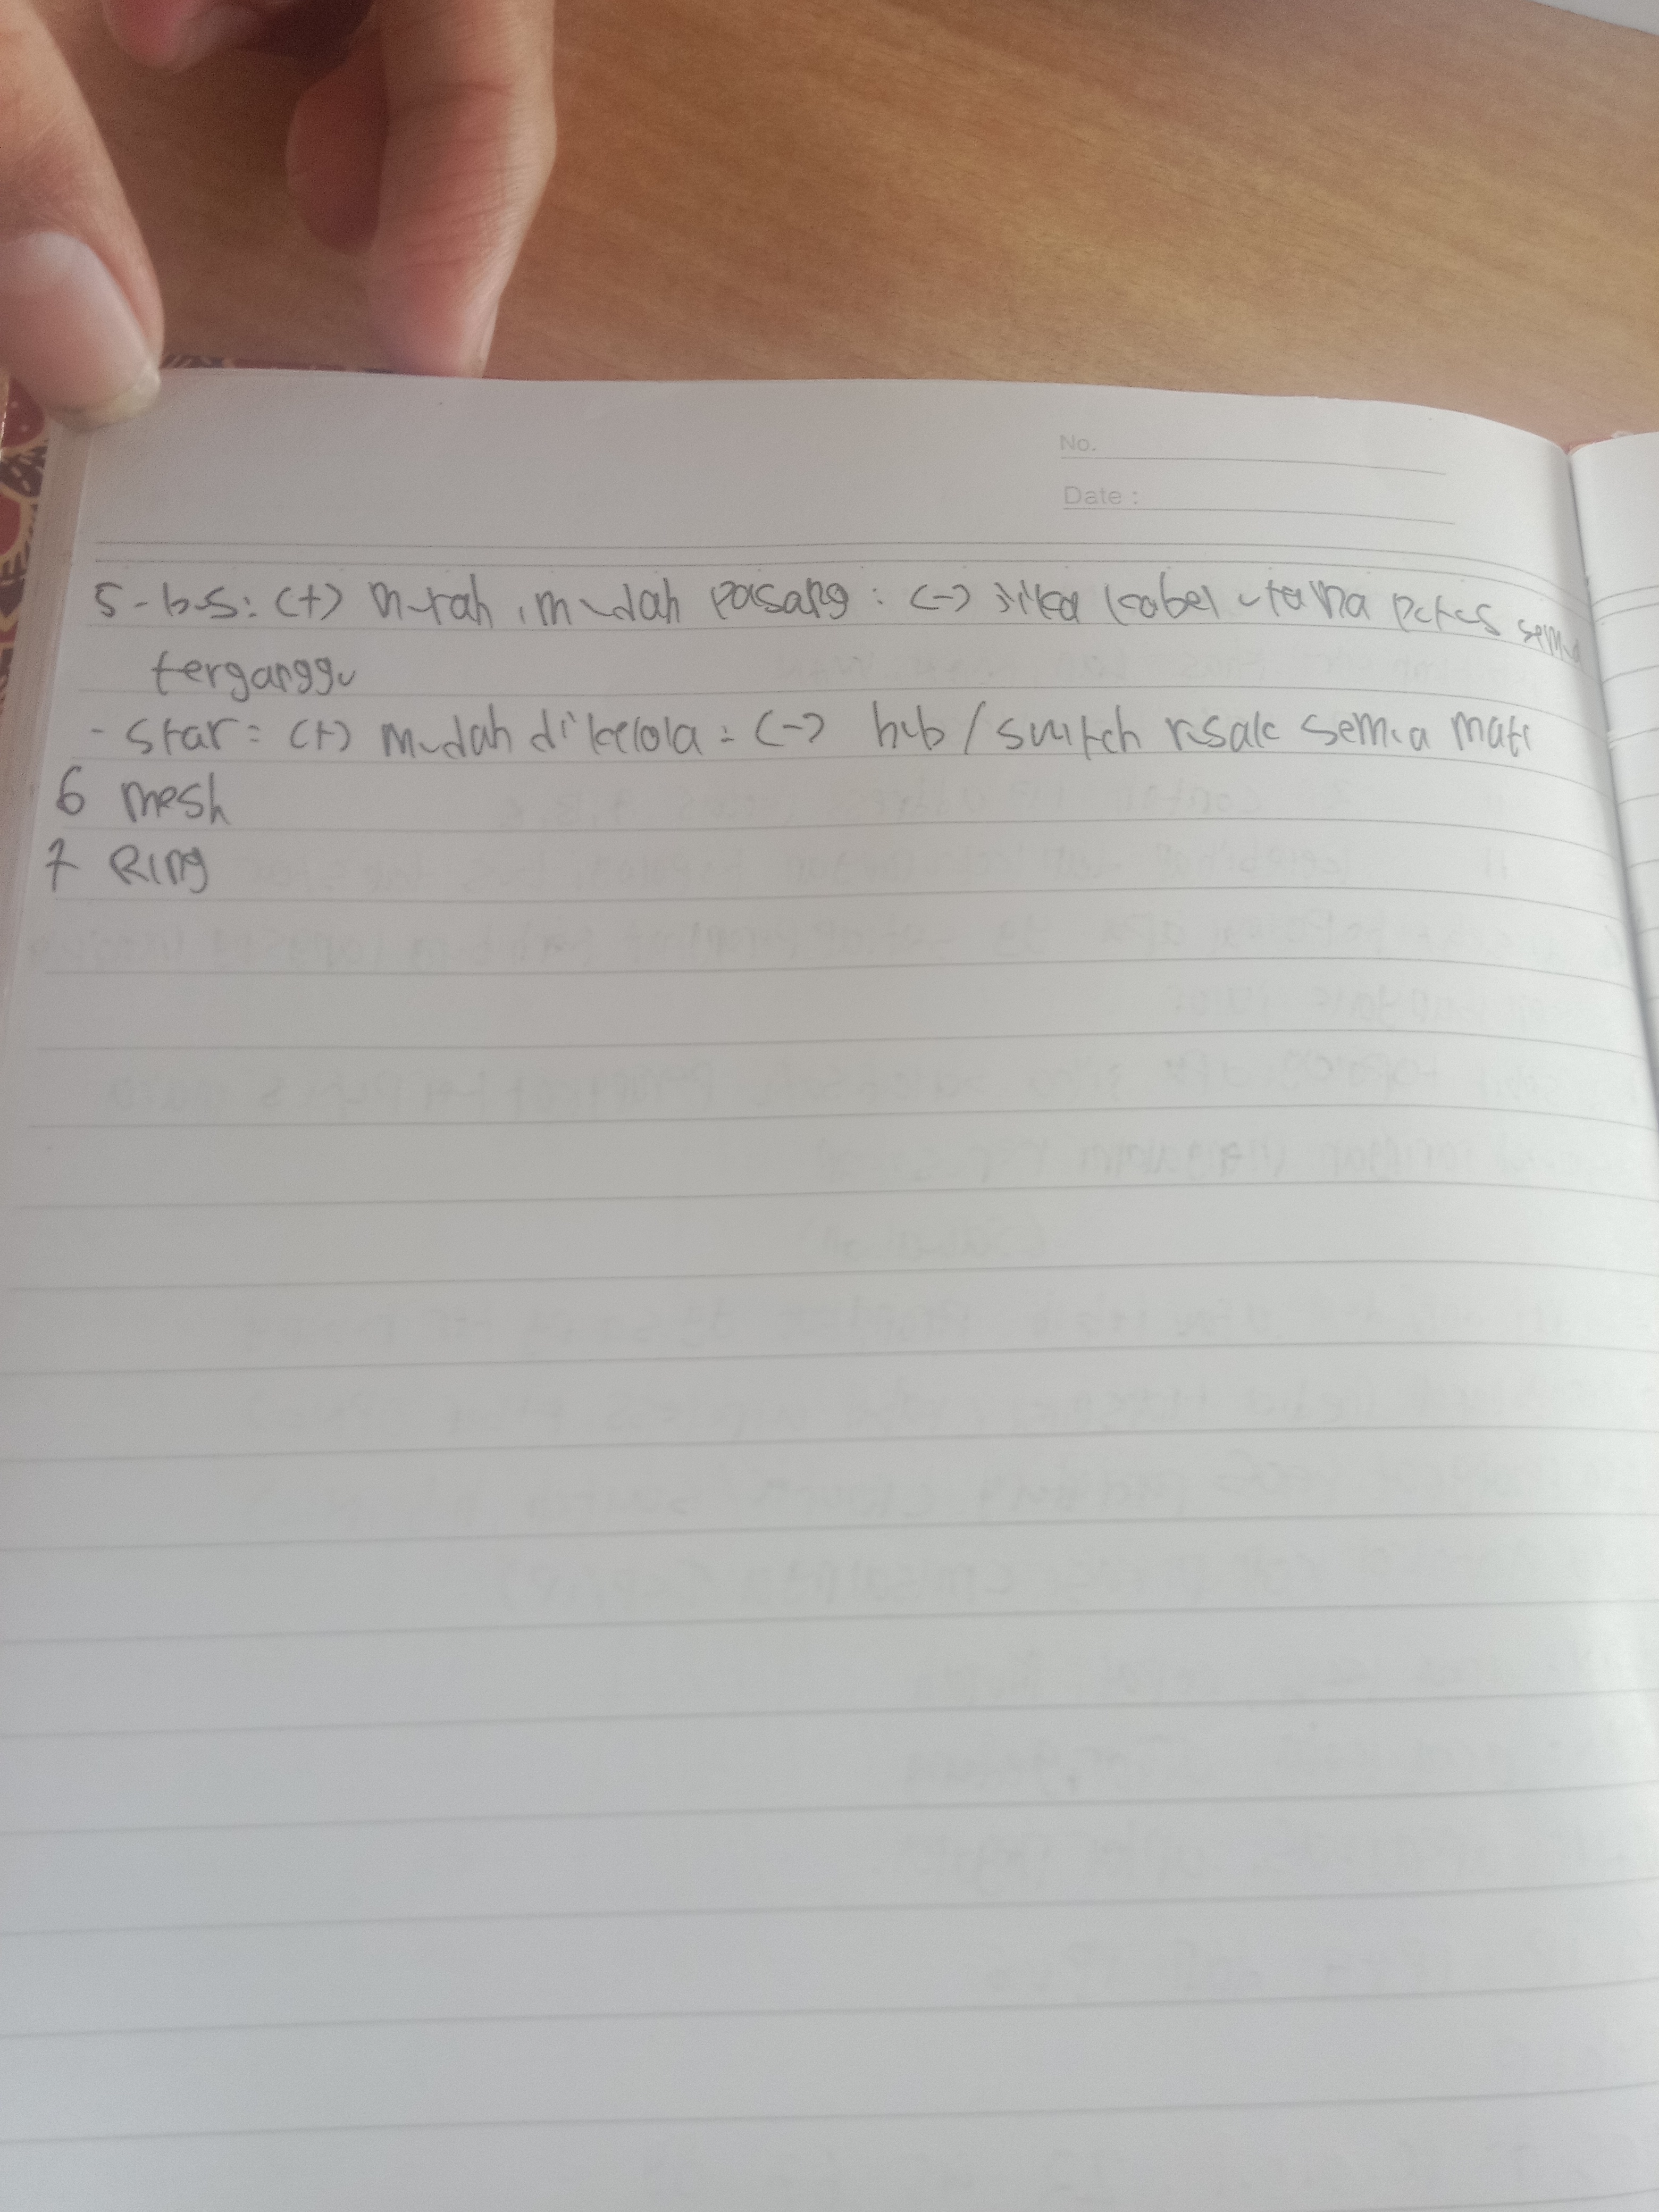 No.
Date :
5 - bus : (+) murah, mudah pasang : (-) jika kabel utama putus semua
terganggu
- Star = (+) mudah dikelola = (-) hub / switch rusak semua mati
6 mesh
7 Ring